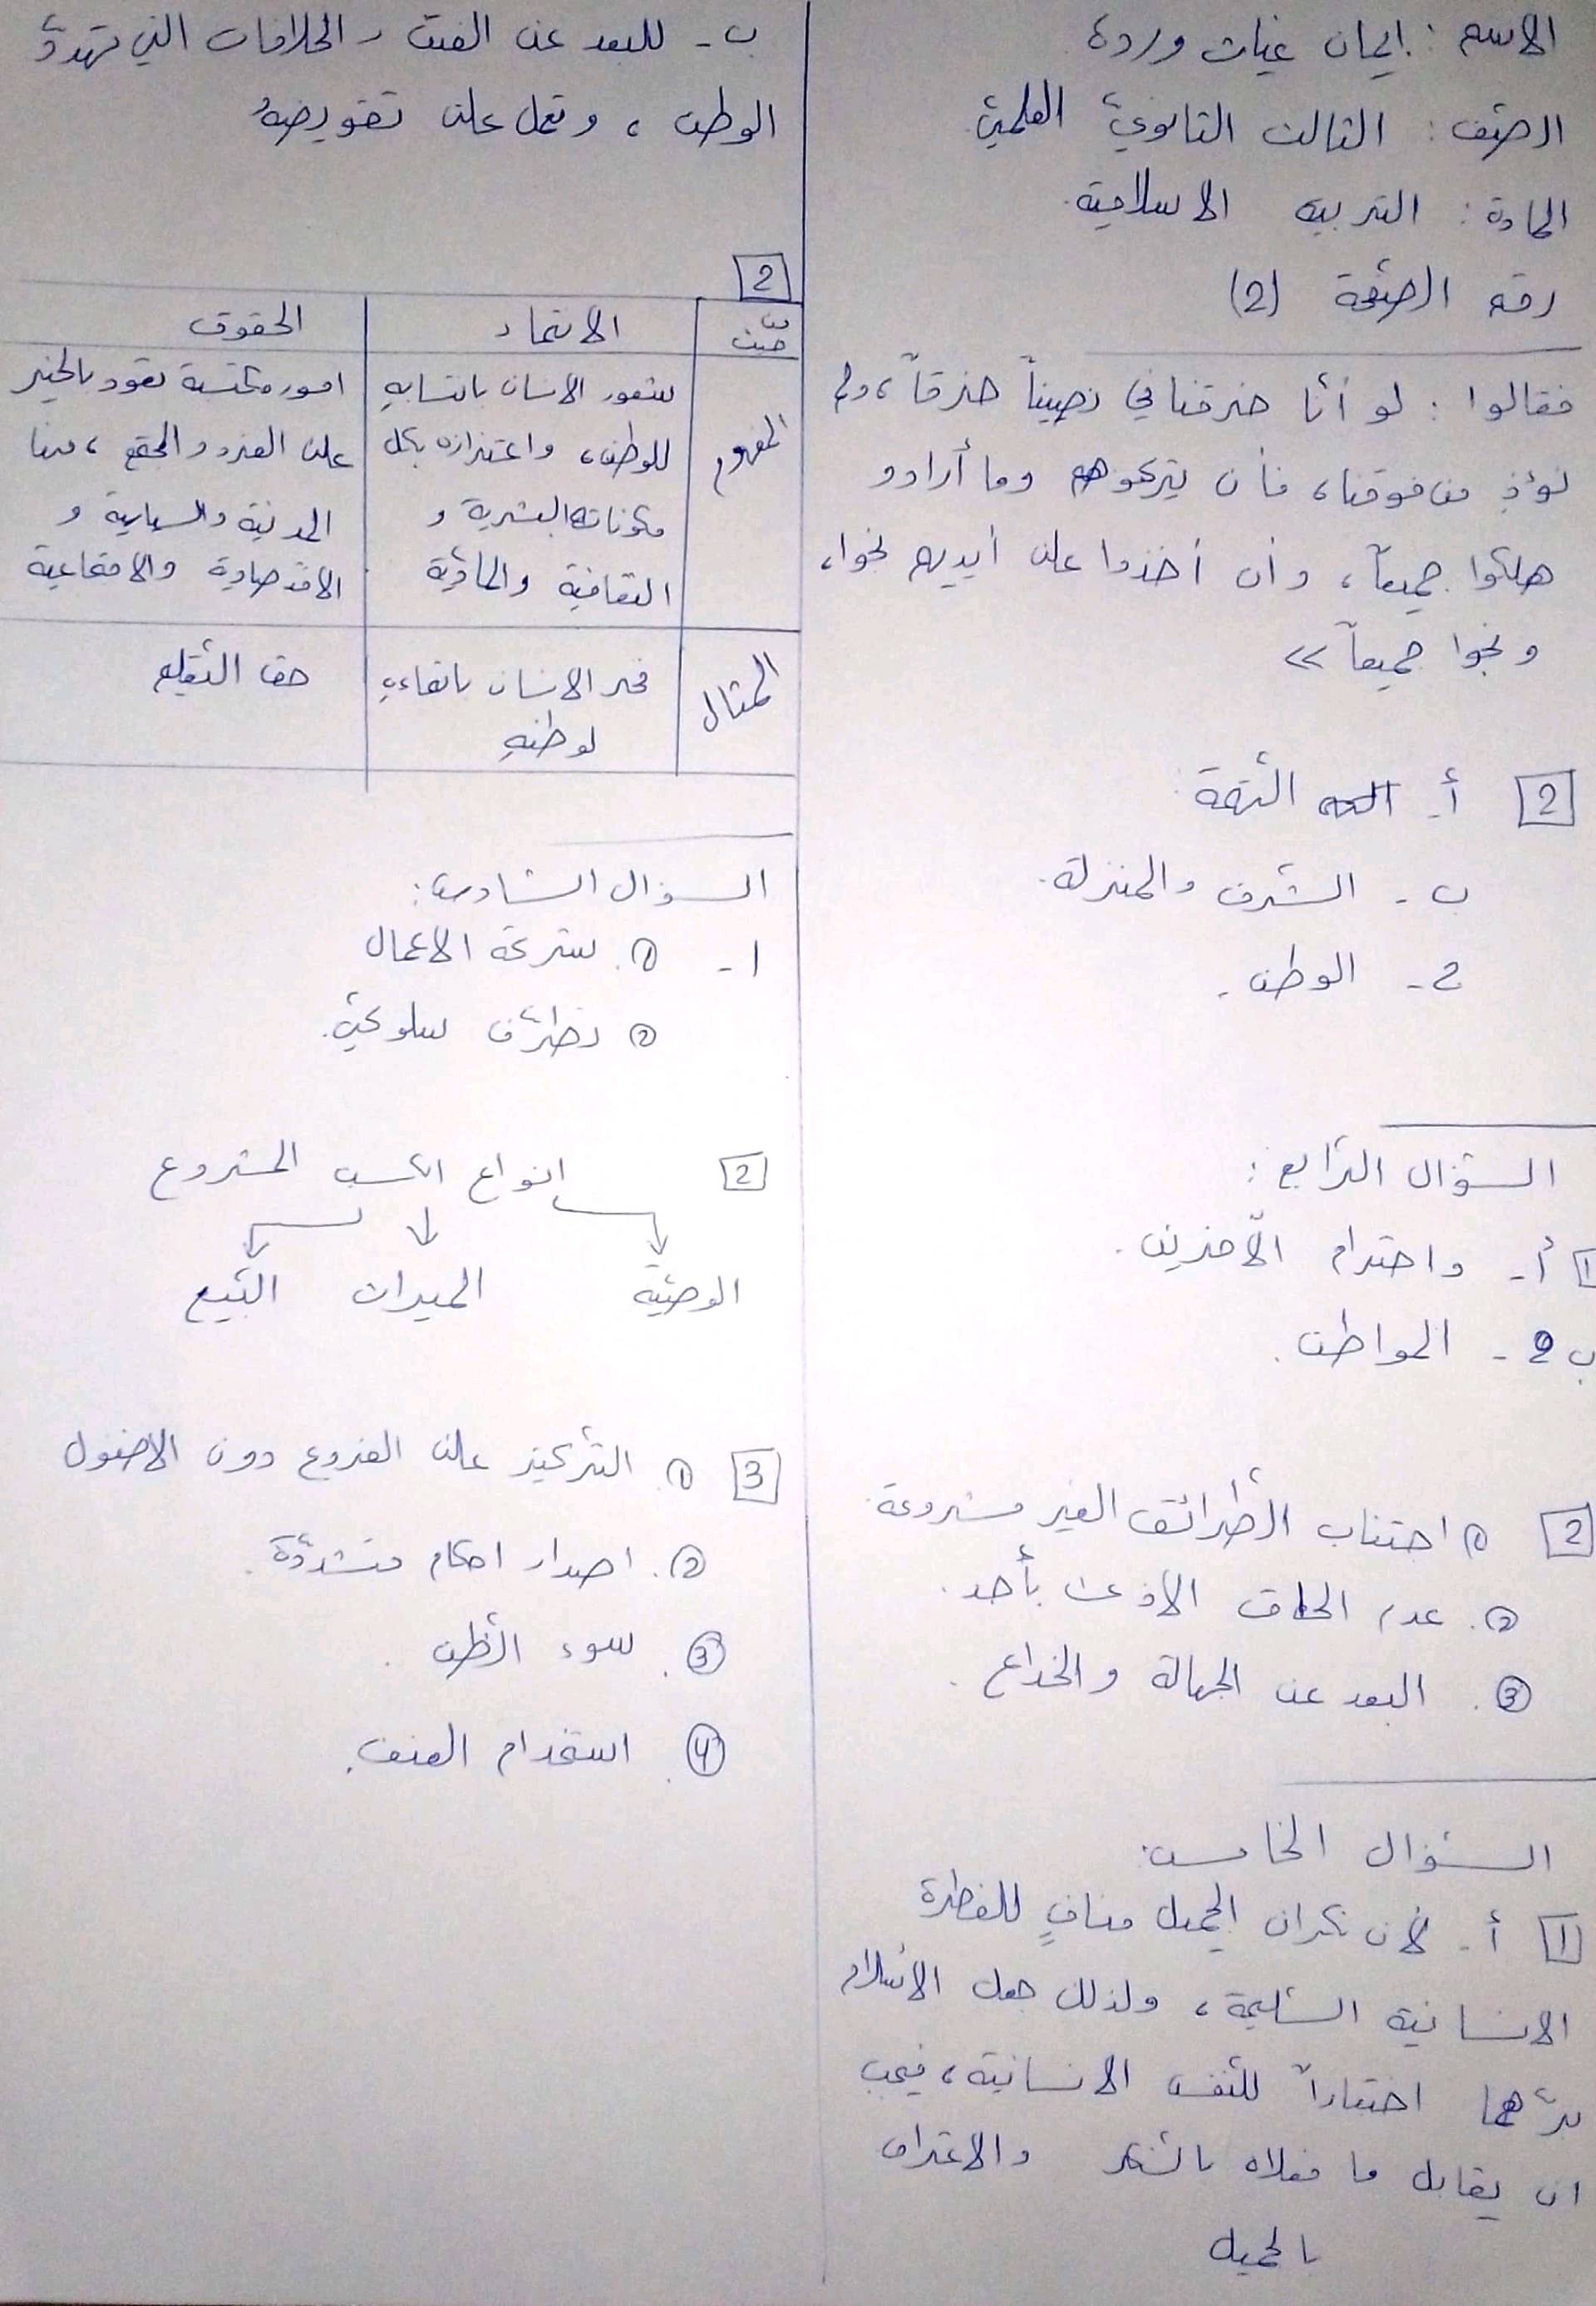 الاسم : إيمان غياث وردة
الصّف : الثالث الثانويّ العلميّ.
المادة : التربية الاسلامية.
رقم الصّفحة (2)
فقالوا : لو أنّا خرقنا في نصيبناً خرقاً ، ولم
نؤذِ من فوقنا ، فأن يتركوهم وما أرادو
هلكوا جميعاً ، وأن أخذوا على أيديهم نجوا ،
ونجوا جميعاً »
2 أ - التهمة
ب - الشرف والمنزلة.
2 - الوطن.
السّؤال الرّابع :
1 أ - واحترام الآخرين.
ب 2 - المواطن.
2 ① اجتناب الطّرائق الغير مشروعة.
②. عدم الحاق الأذى بأحد.
③. البعد عن الجهالة والخداع.
السّؤال الخامس:
1 أ - لأن نكران الجميل منافٍ للفطرة
الانسانية السّليمة ، ولذلك جعل الإسلام
برّهما اختباراً للنّفس الانسانية ، فيجب
ان يقابل ما فعلاه بالشكر والاعتراف
بالجميل
ب - للبعد عن الفتن والخلافات التي تهددّ
الوطن ، وتعمل على تقويضهُ
2
من حيث الانتماء الحقوق
المفهوم شعور الانسان بانتسابهِ امور مكتسبة تعود بالخير
للوطن ، واعتزازه بكل على الفرد والمجتمع ، منها
مكوناته البشرية و المدنية والسياسية و
الثقافية والمادّية الاقتصادية والاجتماعية
المثال فخر الانسان بانتماءهِ حق التّعليم
لوطنهِ
السؤال السّادس:
1 - ①. سرعة الاعمال
② تطرّف سلوكيّ.
2 انواع الكسب المشروع
الوصيّة الميراث البّيع
3 ①. التّركيز على الفروع دون الاصول
②. اصدار احكام متشدّدة.
③. سوء الظّن.
④. استخدام العنف.